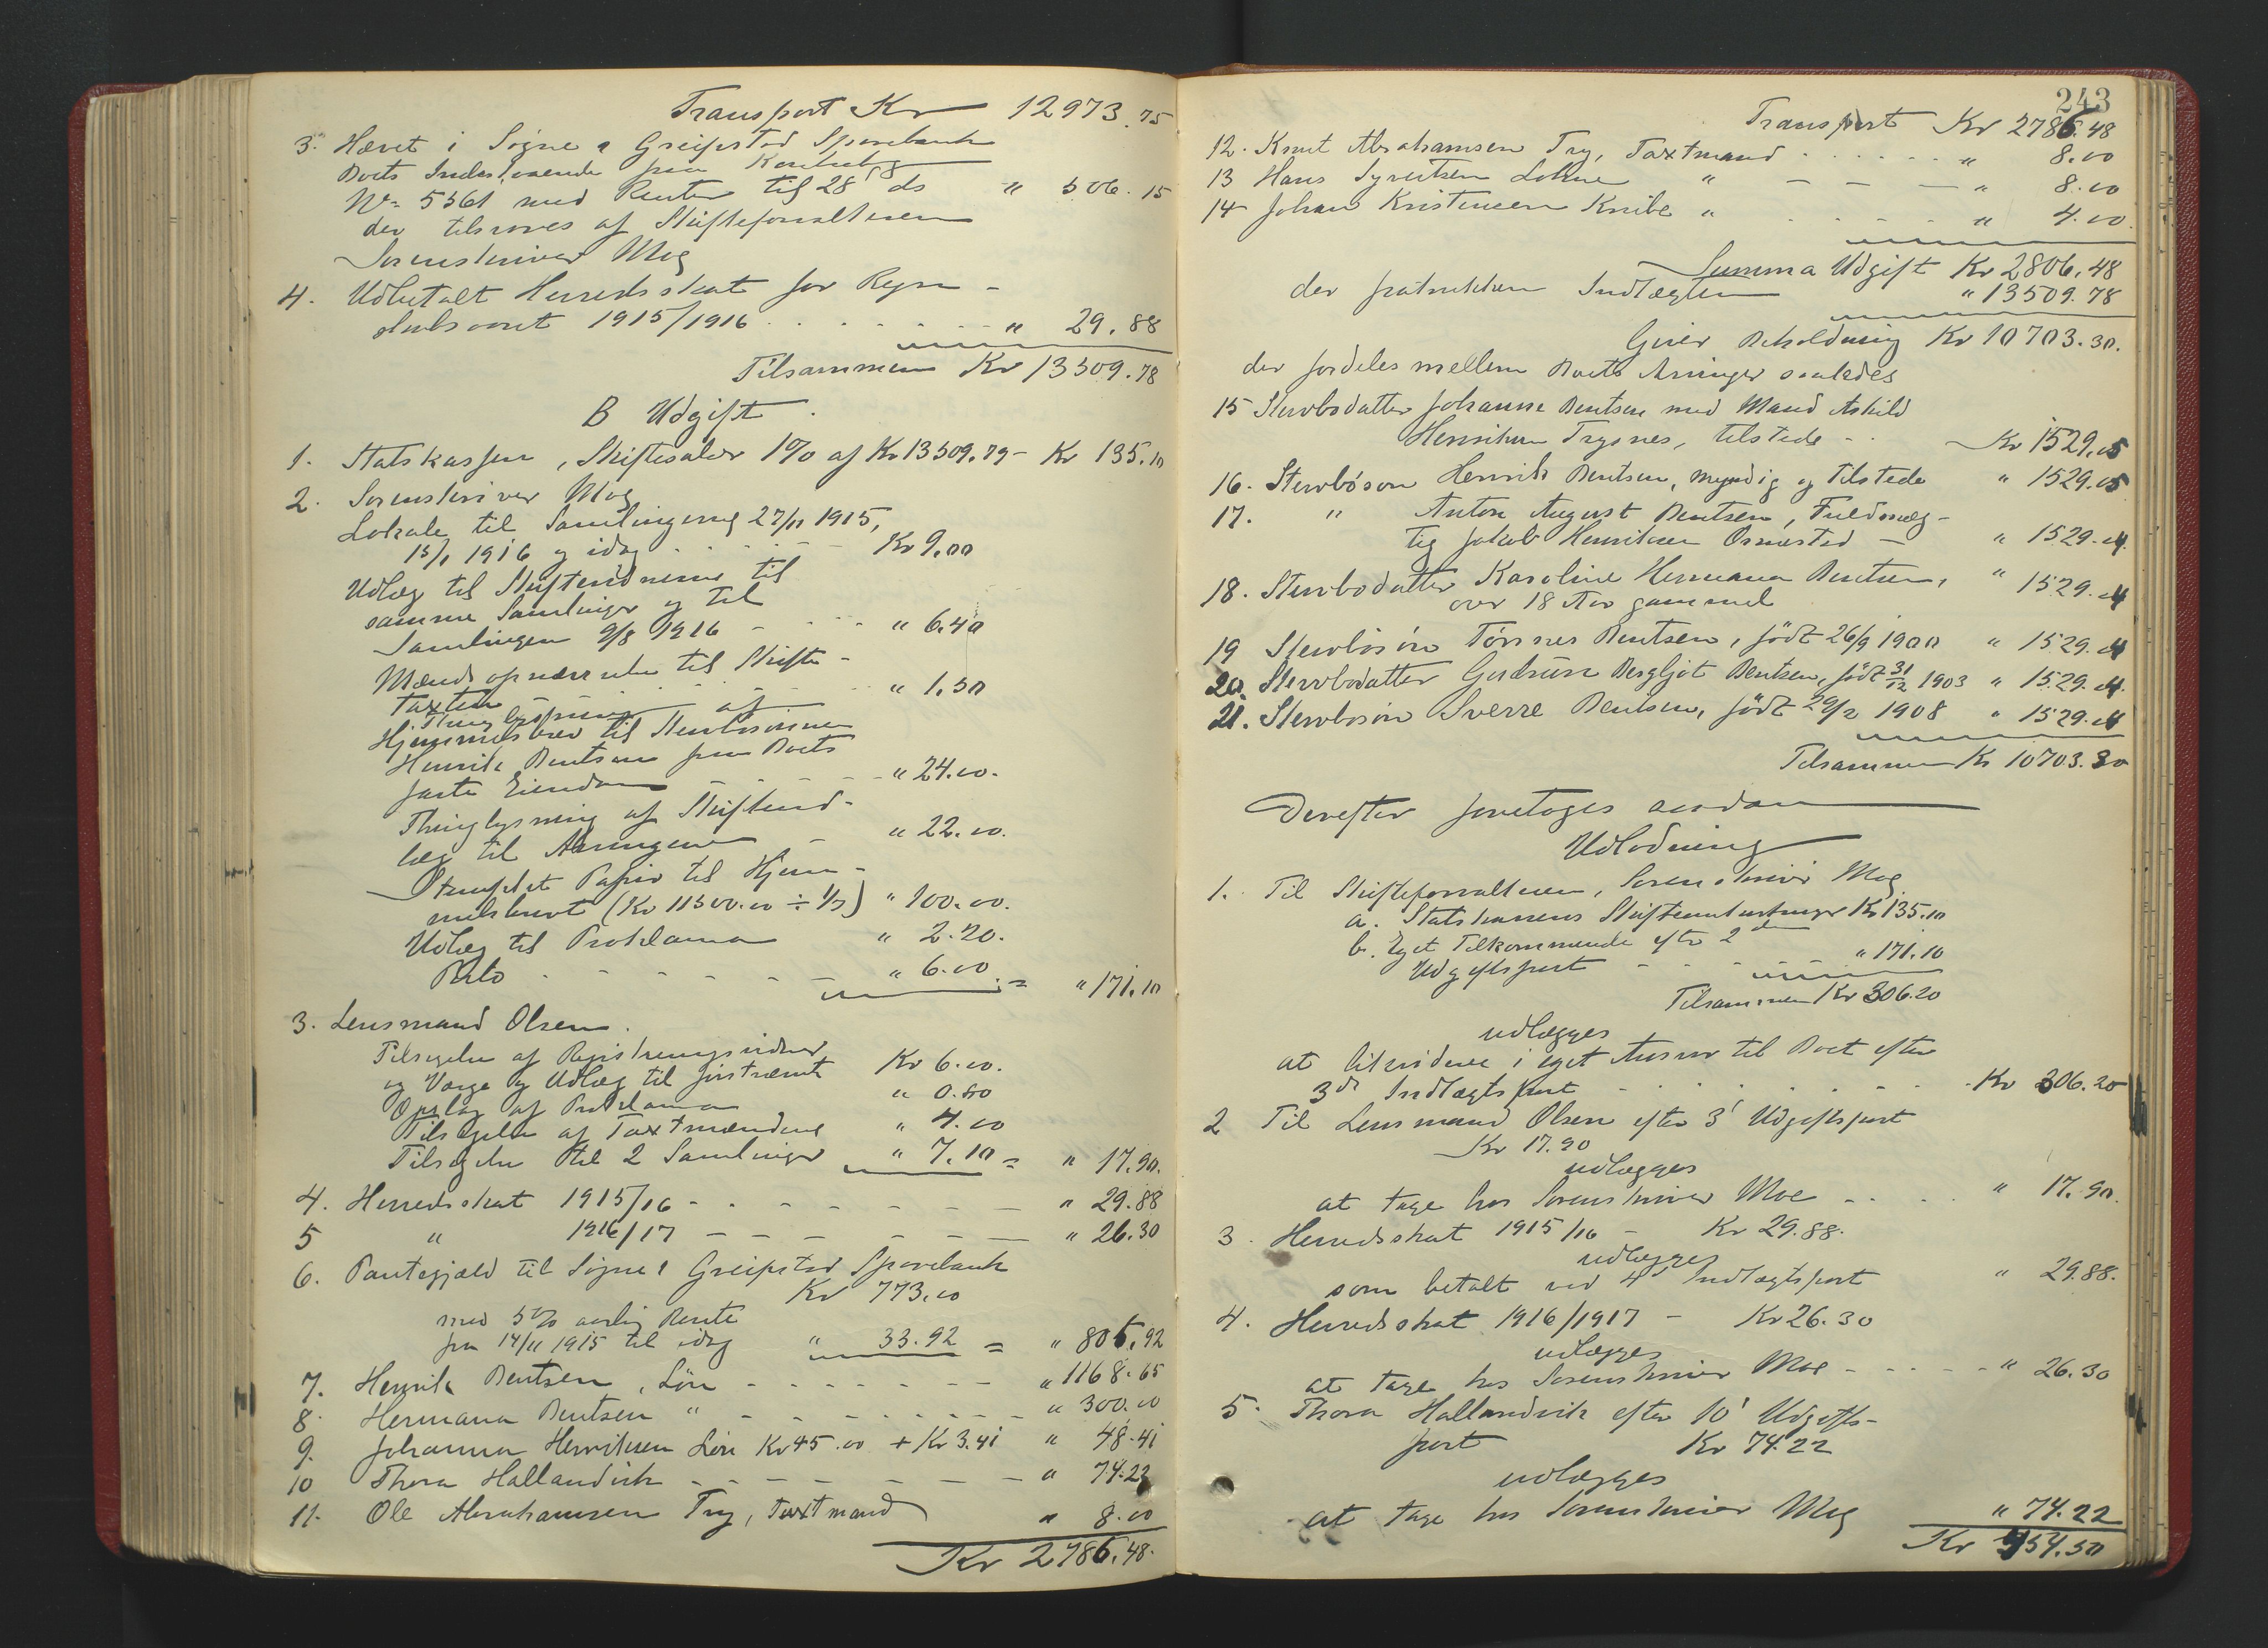 Transport Kr 12973.75
3. Hævet i Søgne & Greipstad Sparebank
Boets Indestaaende paa Kontrabog
No 5361 med Renter til 28/8 ds " 506.15
der tilsvares af Skifteforvalteren
Sorenskriver Moe
4. Udbetalt Herredsskat for Regn-
skabsaaret 1915/1916 . . . . . . . " 29.88
Tilsammen Kr 13509.78
B Udgift.
1. Statskassen, Skiftesalær 1% af Kr 13509.79 - Kr 135.10
2. Sorenskriver Moe
Lokale til Samlingerne 27/11 1915,
15/1 1916 og idag . . . . . Kr 9.00
Udlæg til Skiftevidnerne til
samme Samlinger og til
Samlingen 9/8 1916 - . . . " 6.40
Mænds opnævnelse til Skifte-
taxten - - - - - - " 1.50
Thinglysning af
Hjemmelsbrev til Stervbosønnen
Henrik Bentsen paa Boets
faste Eiendom - - - - " 24.00.
Thinglysning af Skifteud-
læg til Arvingerne - " 22.00.
Stemplet Papir til Hjem-
melsbrevet (Kr 11500.00 ÷ 1/7) " 100.00.
Udlæg til Proklama " 2.20.
Porto - - - - - - " 6.00 = " 171.10
3. Lensmand Olsen.
Tilsigelse af Registreringsvidner
og Værge og Udlæg til førstnævnte Kr 6.00.
Opslag af Proklama " 0.80
Tilsigelse af Taxtmændene " 4.00
Tilsigelse til 2 Samlinger " 7.10 = " 17.90.
4. Herredsskat 1915/16 - - - - - - - " 29.88
5 " 1916/17 - - - - - - " 26.30
6. Pantegjæld til Søgne & Greipstad Sparebank
Kr 773.00
med 5% aarlig Rente
fra 14/11 1915 til idag " 33.92 = " 806.92
7. Henrik Bentsen, Løn - - - - - - - " 1168.65
8. Hermana Bentsen " - - - - - - - " 300.00
9. Johanna Henriksen Løn Kr 45.00 + Kr 3.41 " 48.41
10 Thora Hallandvik - - - - - - - " 74.22
11. Ole Abrahamsen Try, Taxtmand " 8.00
Kr 2786.48.
243
Transport Kr 2786.48
12. Knut Abrahamsen Try, Taxtmand . . . . . " 8.00
13 Hans Syvertsen Lohne " - - - " 8.00
14 Johan Kristensen Knibe " . . . . . " 4.00.
Summa Udgift Kr 2806.48
der fratrukken Indtægten " 13509.78
Giver Beholdning Kr 10703.30.
der fordeles mellem Boets Arvinger saaledes
15 Stervbodatter Johanne Bentsen med Mand Askild
Henriksen Trysnes, tilstede - . Kr 1529.05
16. Stervbosøn Henrik Bentsen, myndig og tilstede " 1529.05
17. " Anton August Bentsen, Fuldmæg-
tig Jakob Henriksen Ormestad - " 1529.04.
18. Stervbodatter Karoline Hermana Bentsen, " 1529.04
over 18 Aar gammel
19 Stervbosøn Tønnes Bentsen, født 26/9 1900 " 1529.04
20. Stervbodatter Gudrun Bergljot Bentsen, født 31/12 1903 " 1529.04.
21. Stervbosøn Sverre Bentsen, født 29/2 1908 " 1529.04
Tilsammen Kr 10703.30
Derefter foretoges saadan
Udlodning
1. Til Skifteforvalteren, Sorenskriver Moe
a. Statskassens Skifteomkostninger Kr 135.10
b. Eget Tilkommende efter 2den
Udgiftspost - - - " 171.10
Tilsammen Kr 306.20
udlægges
at likvidere i eget Ansvar til Boet efter
3die Indtægtspost - - - - - - Kr 306.20
2 Til Lensmand Olsen efter 3' Udgiftspost
Kr 17.90
udlægges
at tage hos Sorenskriver Moe - - . . " 17.90.
3. Herredsskat 1915/16 - Kr 29.88.
udlægges
som betalt ved 4' Indtægtspost " 29.88.
4. Herredsskat 1916/1917 - Kr 26.30
udlægges
at tage hos Sorenskriver Moe - - - - - " 26.30
5. Thora Hallandvik efter 10' Udgifts-
post Kr 74.22
udlægges
at tage hos Sorenskriver Moe " 74.22
Kr 454.50